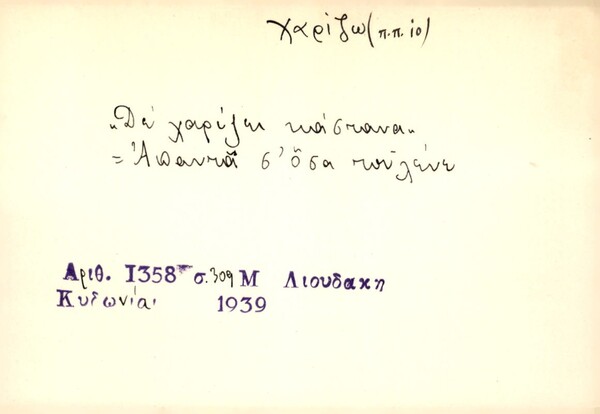 Χαρίζω (π.π. ιο)
„Δὲ χαρίζει κάστανα„
= Ἀπαντᾶ σ' ὅσα τοῦ λένε
Αριθ. 1358 σ. 309 Μ Λιουδακη
Κυδωνίαι 1939